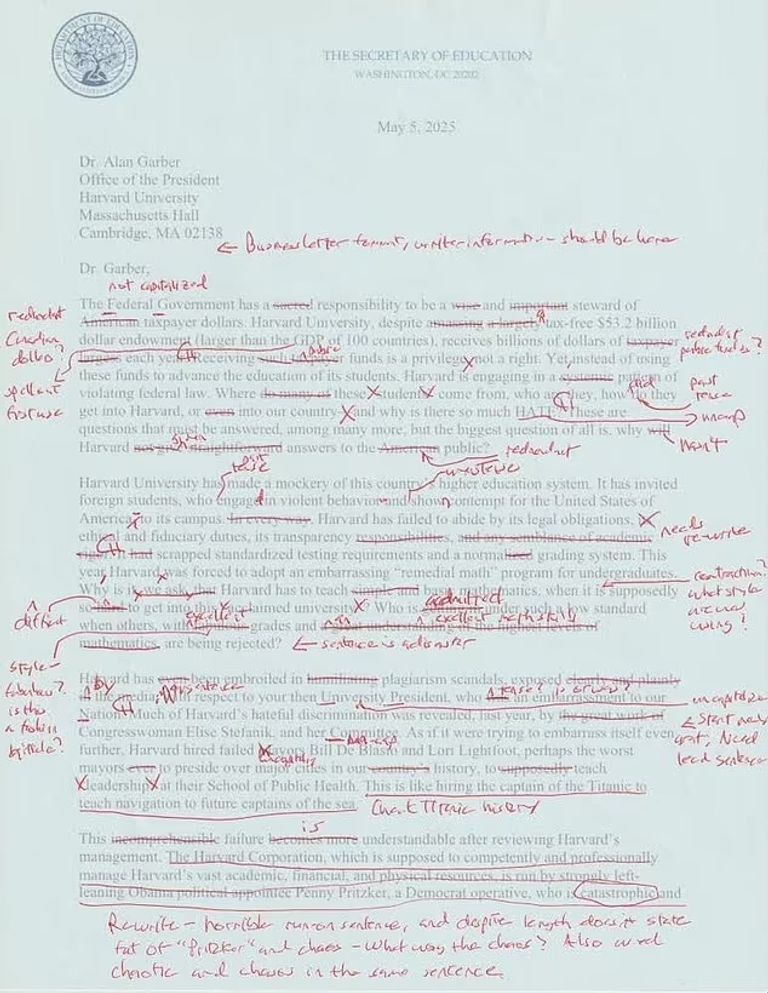 THE SECRETARY OF EDUCATION
WASHINGTON, DC 20202
May 5, 2025
Dr. Alan Garber
Office of the President
Harvard University
Massachusetts Hall
Cambridge, MA 02138
← Business letter format, writer information should be here
Dr. Garber,
not capitalized
The Federal Government has a sacred responsibility to be a wise and important steward of
American taxpayer dollars. Harvard University, despite amassing a largely tax-free $53.2 billion
dollar endowment (larger than the GDP of 100 countries), receives billions of dollars of taxpayer
largess each year. Receiving such taxpayer funds is a privilege, not a right. Yet, instead of using
these funds to advance the education of its students. Harvard is engaging in a systemic pattern of
violating federal law. Where do many of these "students" come from, who are they, how do they
get into Harvard, or even into our country - and why is there so much HATE? These are
questions that must be answered, among many more, but the biggest question of all is, why will
Harvard not give straightforward answers to the American public?
redundant
Canadian
dollars?
spell out
first use
redundant
did
past
tense
given
redundant
won't
Harvard University has made a mockery of this country's higher education system. It has invited
foreign students, who engage in violent behavior and show contempt for the United States of
America, to its campus. In every way, Harvard has failed to abide by its legal obligations, its
ethical and fiduciary duties, its transparency responsibilities, and any semblance of academic
rigor. It had scrapped standardized testing requirements and a normalized grading system. This
year, Harvard was forced to adopt an embarrassing "remedial math" program for undergraduates.
Why is it, we ask, that Harvard has to teach simple and basic mathematics, when it is supposedly
so hard to get into this "acclaimed university"? Who is getting in under such a low standard
when others, with fabulous grades and a great understanding of the highest levels of
mathematics, are being rejected?
needs
re-write
contraction?
what style
are you
using?
difficult
admitted
excellent
excellent math skills
← sentence is a disaster
style -
fabulous?
is this
a fashion
Harvard has even been embroiled in humiliating plagiarism scandals, exposed clearly and plainly
in the media, with respect to your then University President, who is an embarrassment to our
Nation. Much of Harvard's hateful discrimination was revealed, last year, by the great work of
Congresswoman Elise Stefanik, and her Committee. As if it were trying to embarrass itself even
further, Harvard hired failed Mayors Bill De Blasio and Lori Lightfoot, perhaps the worst
mayors ever to preside over major cities in our country's history, to supposedly teach
"leadership" at their School of Public Health. This is like hiring the captain of the Titanic to
teach navigation to future captains of the sea.
by
tense?
uncapitalize
← Start new
lead sentence
Check Titanic history
is
This incomprehensible failure becomes more understandable after reviewing Harvard's
management. The Harvard Corporation, which is supposed to competently and professionally
manage Harvard's vast academic, financial, and physical resources, is run by strongly left-
leaning Obama political appointee Penny Pritzker, a Democrat operative, who is catastrophic and
Rewrite - horrible run on sentence, and despite length doesn't state
"Pritzker" and chaos - What was the chaos? Also used
chaotic and chaos in the same sentence.